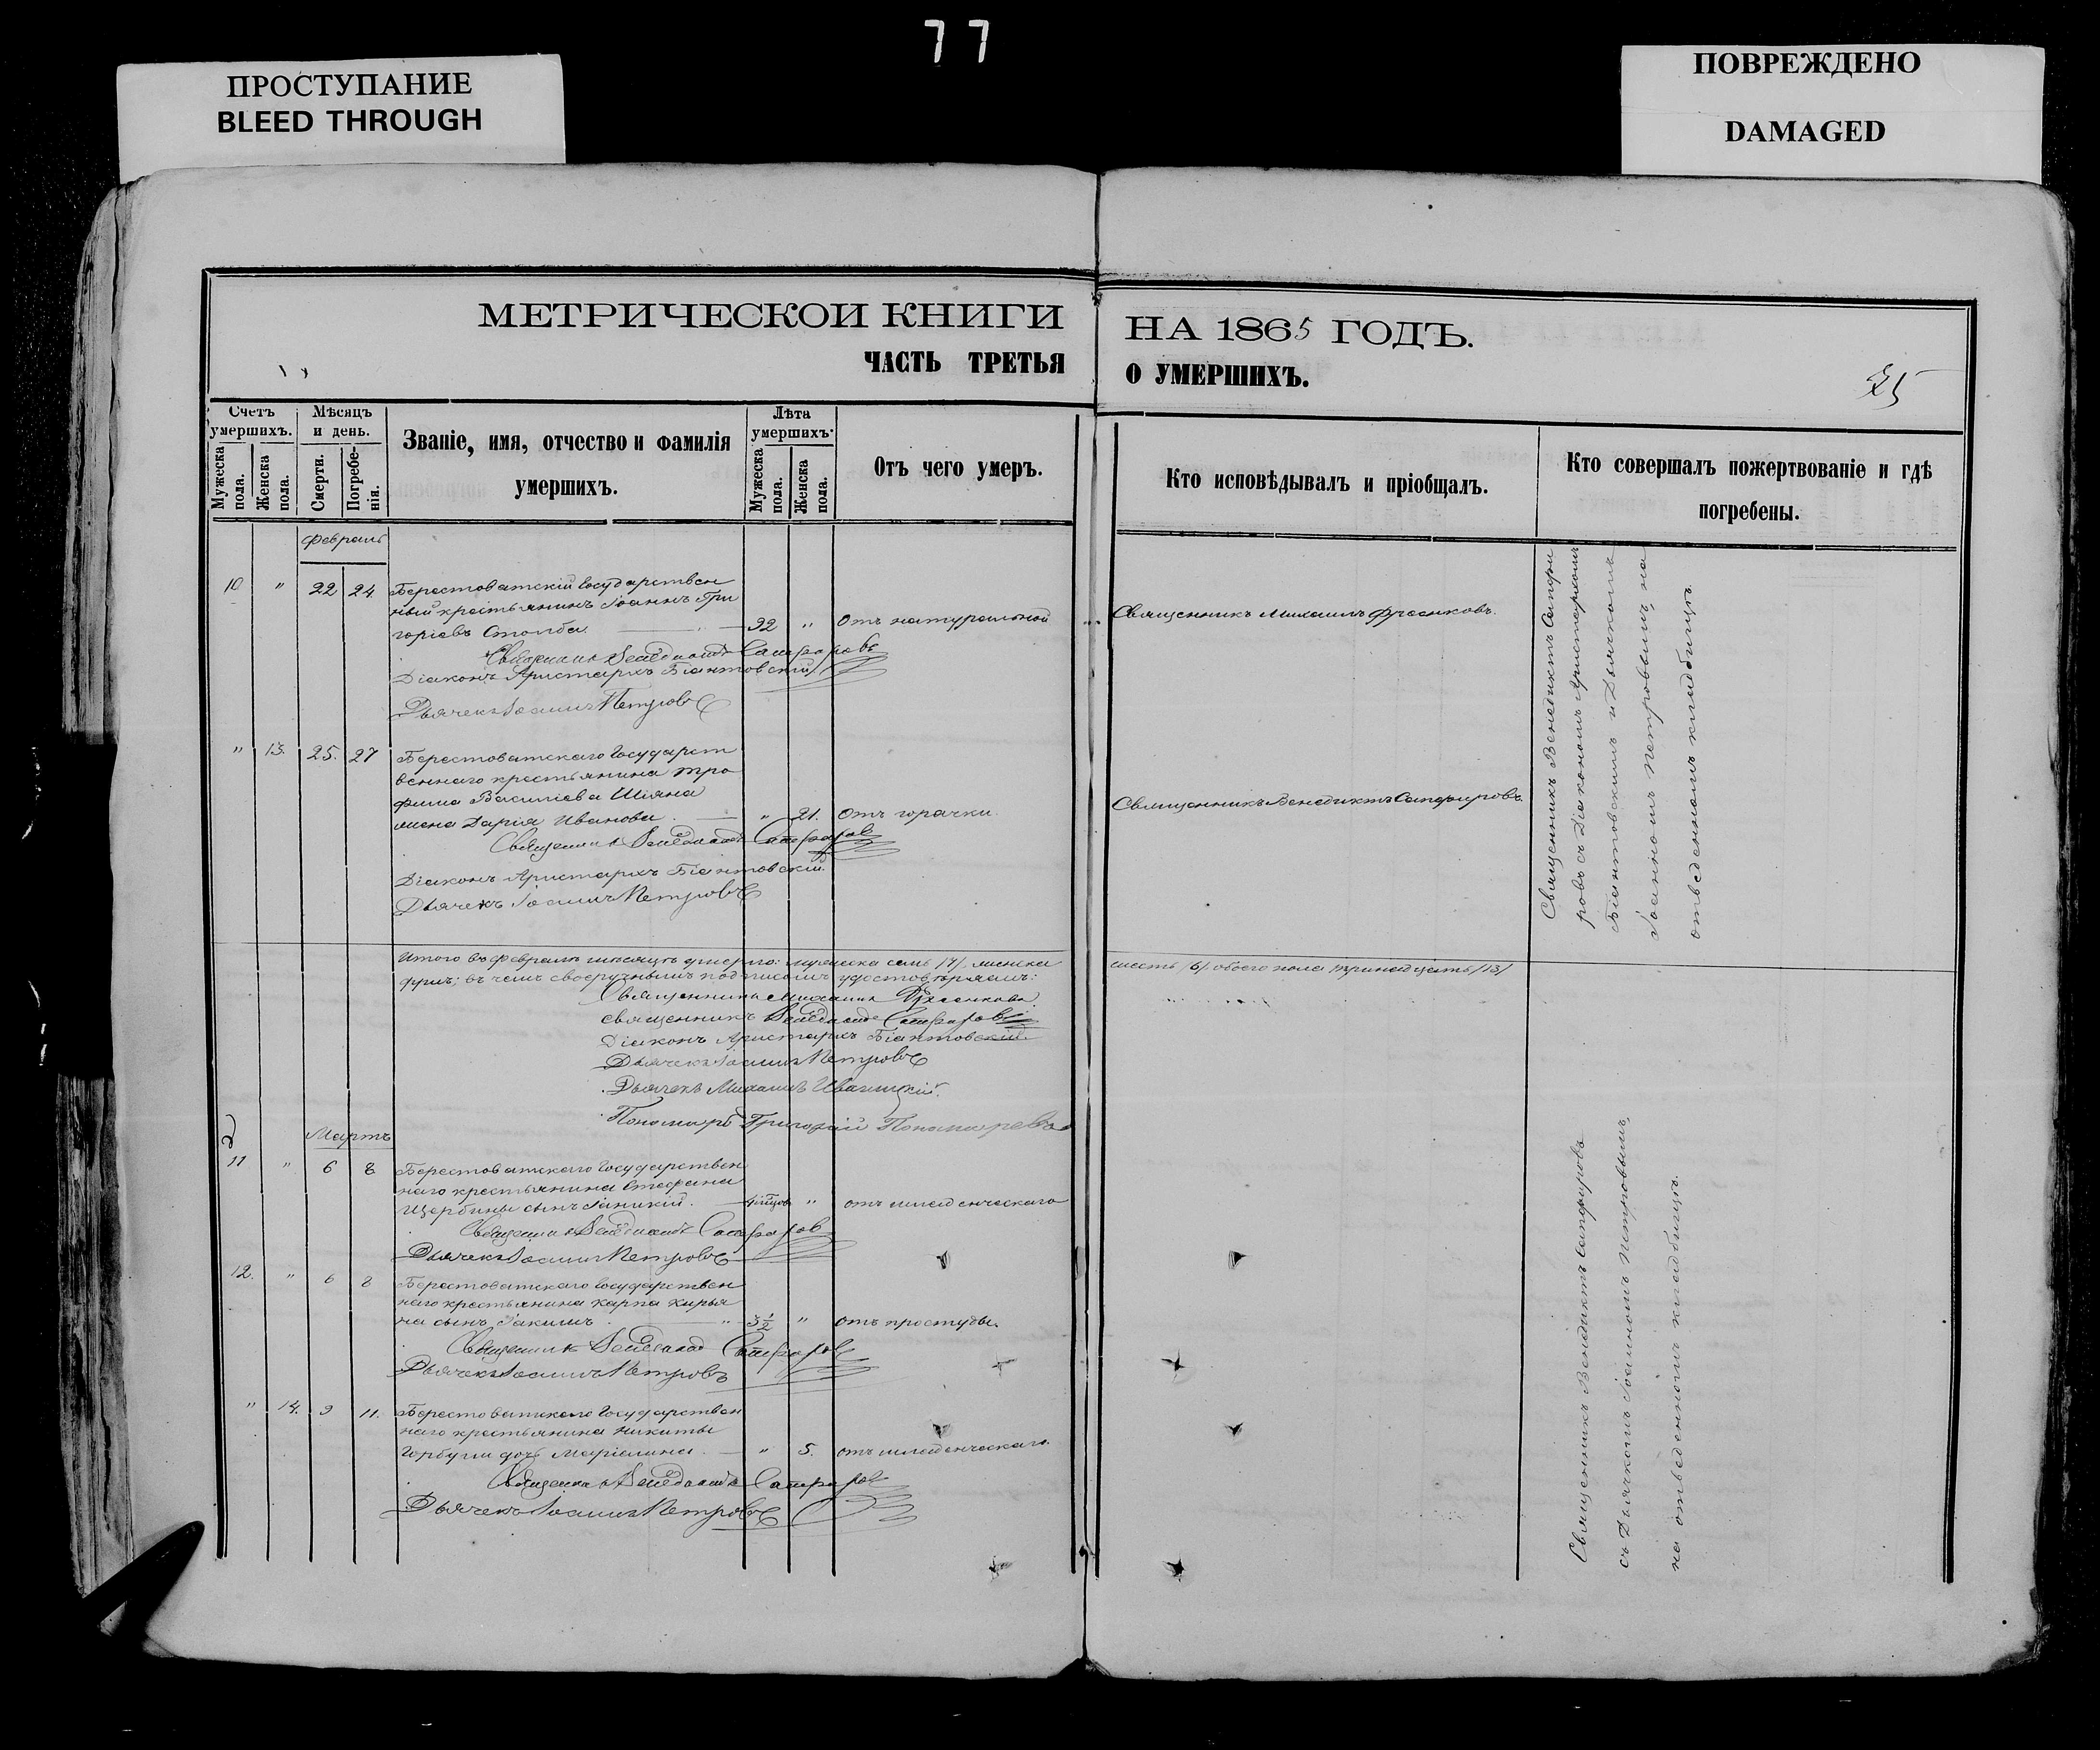 77
ПРОСТУПАНИЕ
BLEED THROUGH
ПОВРЕЖДЕНО
DAMAGED
МЕТРИЧЕСКОЙ КНИГИ
ЧАСТЬ ТРЕТЬЯ
НА 1865 ГОДЪ.
О УМЕРШИХЪ.
25
Счетъ умершихъ.
Мужеска пола.
Женска пола.
Мѣсяцъ и день.
Смерти.
Погребенія.
Званіе, имя, отчество и фамилія
умершихъ.
Лѣта умершихъ.
Мужеска пола.
Женска пола.
Отъ чего умеръ.
Кто исповѣдывалъ и пріобщалъ.
Кто совершалъ пожертвованіе и гдѣ
погребены.
Февраль
10 " 22 24 Берестоватскій государствен
ный крестьянинъ Іоаннъ Гри
горіевъ Столба. 92 " Отъ натуральной
Священникъ Михаилъ
Священникъ Венедиктъ Сапфировъ
Діаконъ Аристархъ Біантовскій
Дьячекъ Іоаннъ Петровъ
" 13. 25. 27 Берестоватскаго Государст
веннаго крестьянина Тро
фима Василіева Шіяна
жена Дарія Иванова. " 21. Отъ горячки.
Священникъ Венедиктъ Сапфировъ.
Священникъ Венедиктъ Сапфировъ
Діаконъ Аристархъ Біантовскій.
Дьячекъ Іоаннъ Петровъ
Священникъ Венедиктъ Сапфи
ровъ съ Діакономъ Аристархомъ
Біантовскимъ и Дьячкомъ
Іоанномъ Петровымъ, на
отведенномъ кладбищѣ.
Итого въ февралѣ мѣсяцѣ умерло: мужеска семь /7/. женска
шесть /6/. обоего пола тринадцать /13/
въ чемъ своеручнымъ подписомъ удостовѣряемъ:
Священникъ Михаилъ
Священникъ Венедиктъ Сапфировъ
Діаконъ Аристархъ Біантовскій.
Дьячекъ Іоаннъ Петровъ
Дьячекъ Михаилъ Иваницкій.
Пономарь Григорій Пономаревъ
Мартъ
11 " 6 8 Берестоватскаго Государствен
наго крестьянина Стефана
Щербины сынъ Іаникій. " отъ младенческаго
Священникъ Венедиктъ Сапфировъ
Дьячекъ Іоаннъ Петровъ
12. " 6 8 Берестоватскаго Государствен
наго крестьянина Карпа Кирья
на сынъ Іакимъ. 3½ " отъ простуды.
Священникъ Венедиктъ Сапфировъ
Дьячекъ Іоаннъ Петровъ
" 14. 9 11. Берестоватскаго Государствен
наго крестьянина Никиты
Горбули дочь Маріамна. " 5. отъ младенческаго.
Священникъ Венедиктъ Сапфировъ
Дьячекъ Іоаннъ Петровъ
Священникъ Венедиктъ Сапфировъ
съ Дьячкомъ Іоанномъ Петровымъ,
на отведенномъ кладбищѣ.